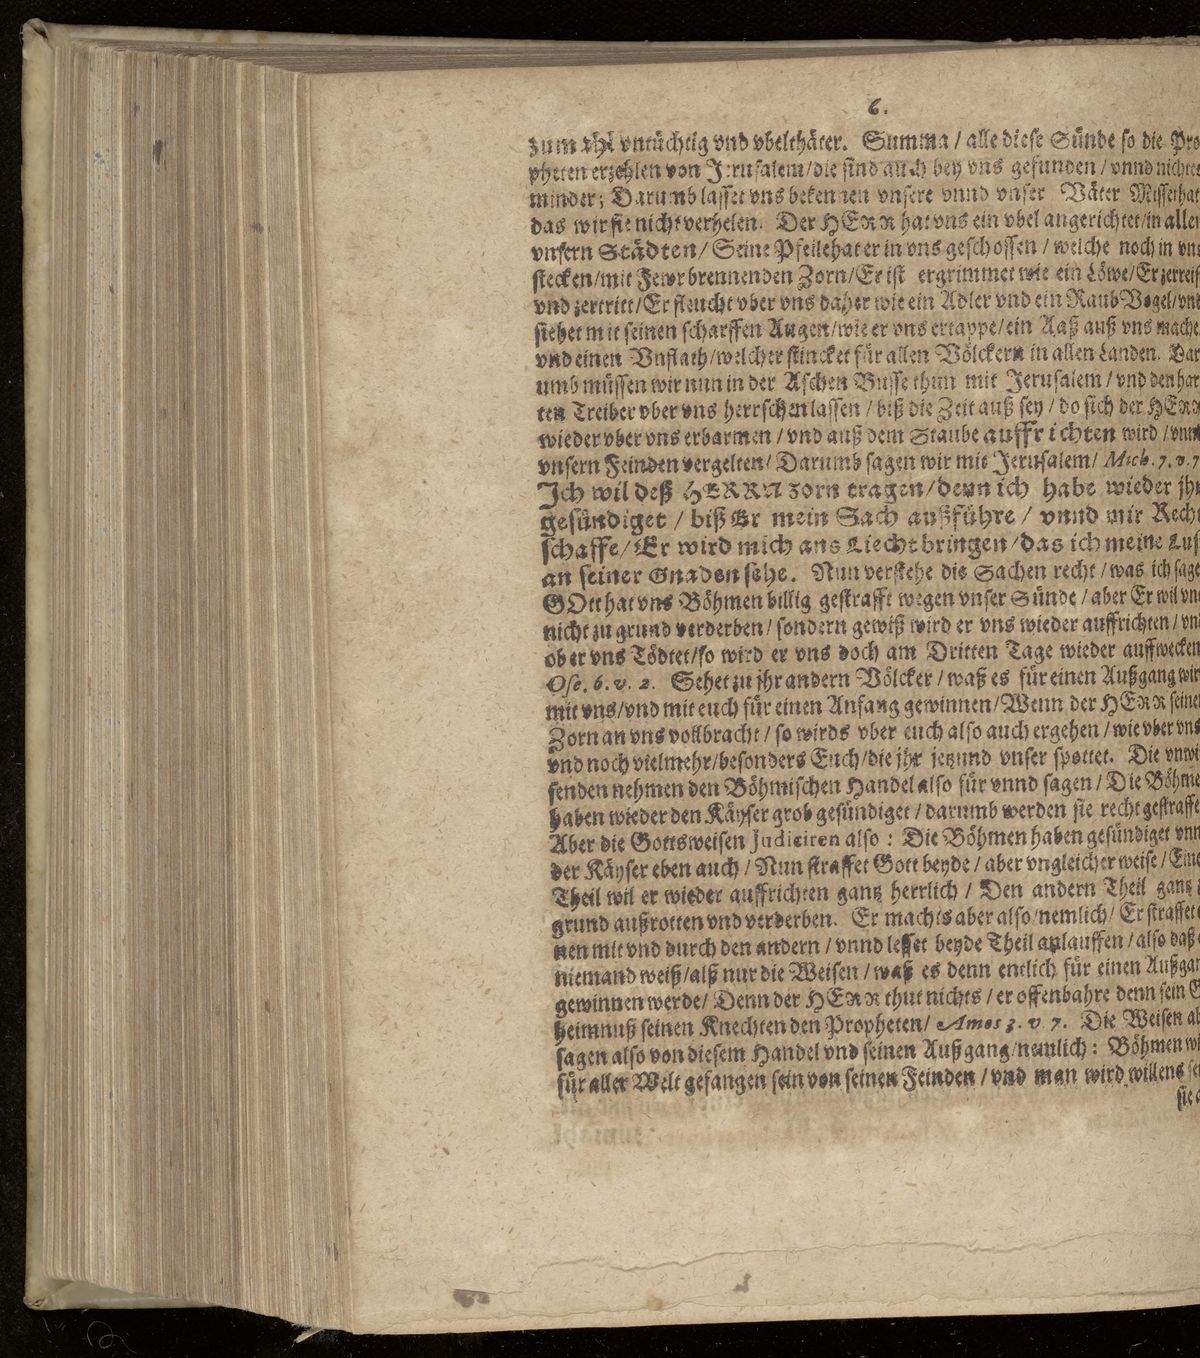 6.
zum vntüchtig vnd vbelthäter. Summa / alle diese Sünde so die Pro
pheten erzehlen von Jerusalem/die sind auch bey vns gefunden / vnnd nichtes
minder; Darumb lasset vns bekennen vnsere vnnd vnser Väter Missethat
das wir sie nicht verhelen. Der HERR hat vns ein vbel angerichtet/in allen
vnsern Städten/ Seine Pfeile hat er in vns geschossen / welche noch in vns
stecken/mit Fewrbrennenden Zorn/Er ist ergrimmet wie ein Löwe/Er zerreis
vnd zertritt/Er fleucht vber vns daher wie ein Adler vnd ein Raub Vogel/vnd
siehet mit seinen scharffen Augen/wie er vns ertappe/ein Aaß auß vns mache
vnd einen Vnflath/welcher stincket für allen Völckern in allen Landen. Dar
umb müssen wir nun in der Aschen Busse thun mit Jerusalem / vnd den har
ten Treiber vber vns herrschen lassen / biß die Zeit auß sey / do sich der HERR
wieder vber vns erbarmen / vnd auß dem Staube auffrichten wird / vnnd
vnsern Feinden vergelten/ Darumb sagen wir mit Jerusalem/ Mich. 7. v. 7
Ich wil deß HERRN zorn tragen/denn ich habe wieder jhn
gesündiget / biß Er mein Sach außführe / vnnd mir Recht
schaffe/Er wird mich ans Liecht bringen/das ich meine Lus
an seiner Gnaden sehe. Nun verstehe die Sachen recht / was ich sage
GOtt hat vns Böhmen billig gestrafft wegen vnser Sünde / aber Er wil vns
nicht zu grund verderben/ sondern gewiß wird er vns wieder auffrichten / vnd
ob er vns Tödtet/so wird er vns doch am Dritten Tage wieder auffwecken
Ose. 6. v. 2. Sehet zu jhr andern Völcker / waß es für einen Außgang wir
mit vns/vnd mit euch für einen Anfang gewinnen/Wenn der HERR seinen
Zorn an vns vollbracht / so wirds vber euch also auch ergehen / wie vber vns
vnd noch vielmehr/besonders Euch/die jhr jetzund vnser spottet. Die vnwi
senden nehmen den Böhmischen Handel also für vnnd sagen / Die Böhme
haben wieder den Käyser grob gesündiget / darumb werden sie recht gestraffe
Aber die Gottsweisen Judiciren also : Die Böhmen haben gesündiget vnn
der Käyser eben auch / Nun straffet Gott beyde / aber vngleicher weise / Eine
Theil wil er wieder auffrichten gantz herrlich / Den andern Theil gantz z
grund außrotten vnd verderben. Er machts aber also/nemlich/ Er straffet e
nen mit vnd durch den andern / vnnd lesset beyde Theil anlauffen / also daß
niemand weiß/alß nur die Weisen / waß es denn entlich für einen Außgan
gewinnen werde/ Denn der HERR thut nichts / er offenbahre denn sein G
heimnuß seinen Knechten den Propheten/ Amos 3. v 7. Die Weisen ab
sagen also von diesem Handel vnd seinen Außgang/nemlich: Böhmen wi
für aller Welt gefangen sein von seinen Feinden / vnd man wird willens sei
sie a